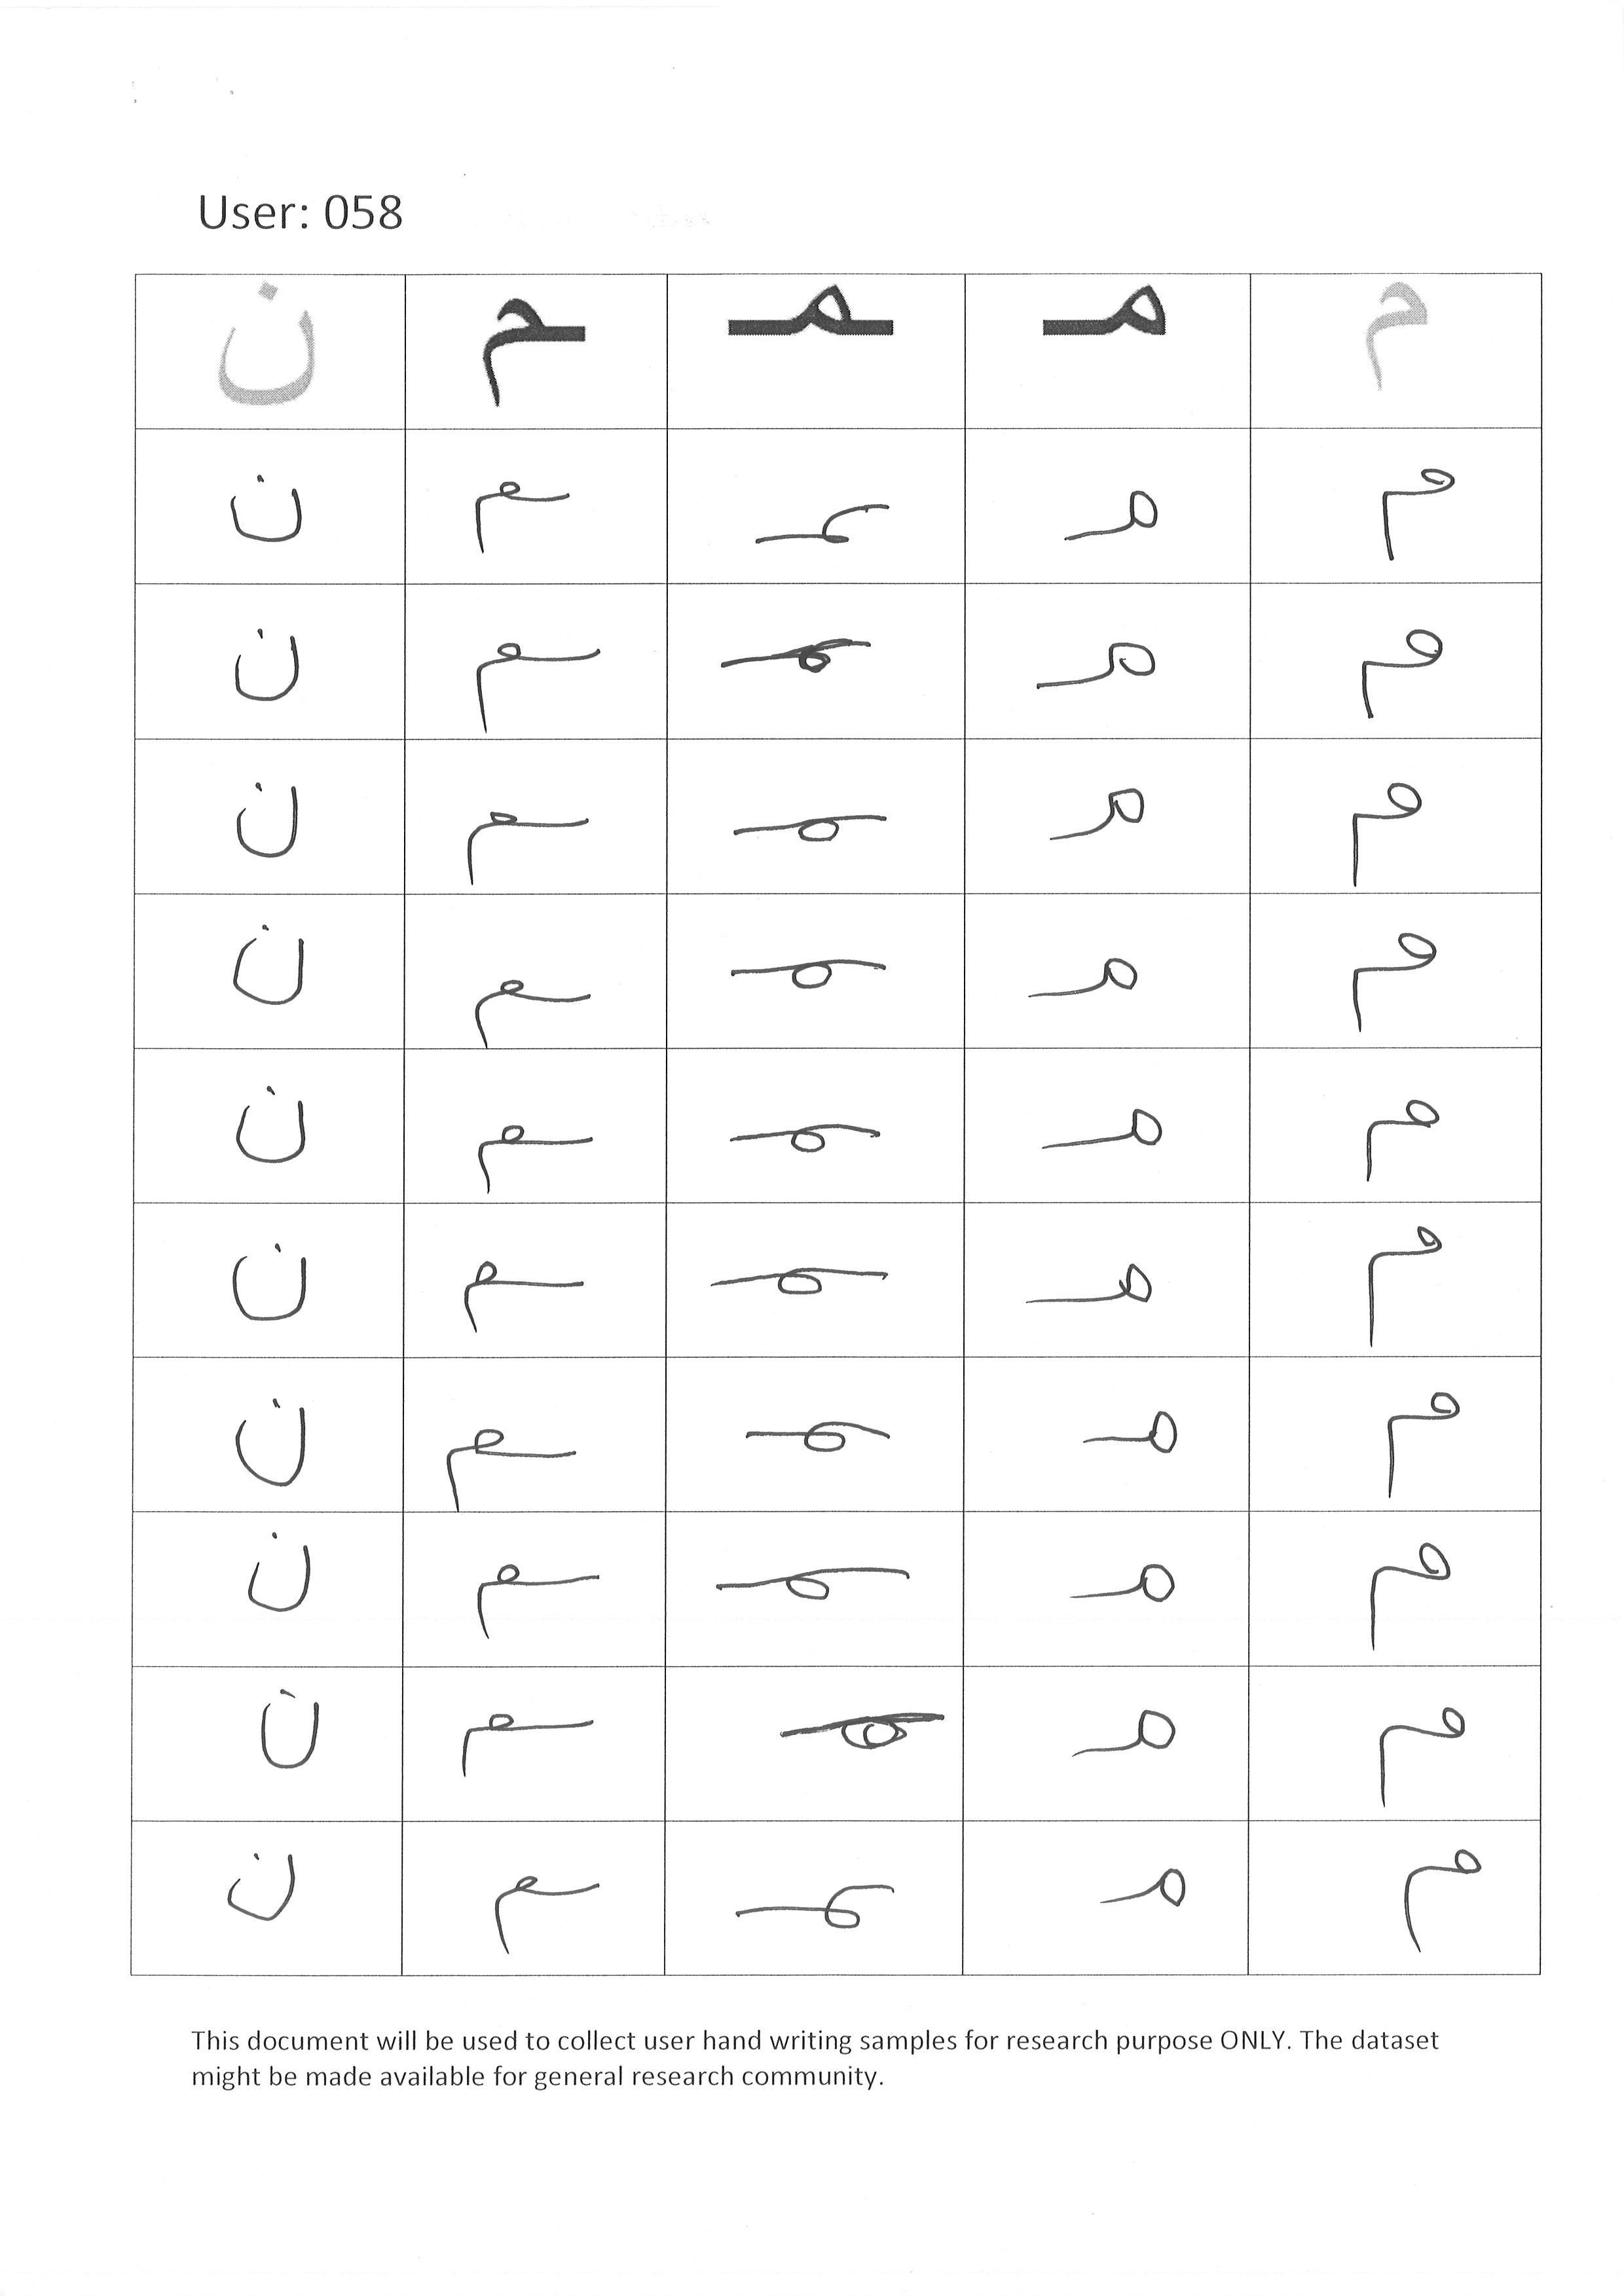 User: 058
م مـ ـمـ ـم ن
م مـ ـمـ ـم ن
م مـ ـمـ ـم ن
م مـ ـمـ ـم ن
م مـ ـمـ ـم ن
م مـ ـمـ ـم ن
م مـ ـمـ ـم ن
م مـ ـمـ ـم ن
م مـ ـمـ ـم ن
م مـ ـمـ ـم ن
م مـ ـمـ ـم ن
This document will be used to collect user hand writing samples for research purpose ONLY. The dataset
might be made available for general research community.